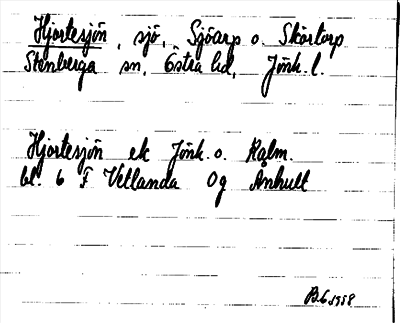 Hjortesjön, sjö, Sjöarp o. Skörtorp
Stenberga sn, Östra hd, Jönk. l.
Hjortesjön ek Jönk. o. Kalm.
bl. 6 F Vetlanda Og Anhult
B.G. 1958